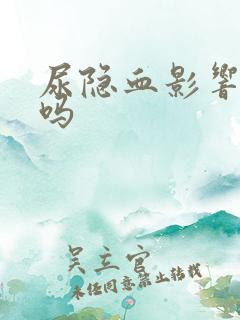 尿隐血影响
吗
吴立官
未经同意禁止转载